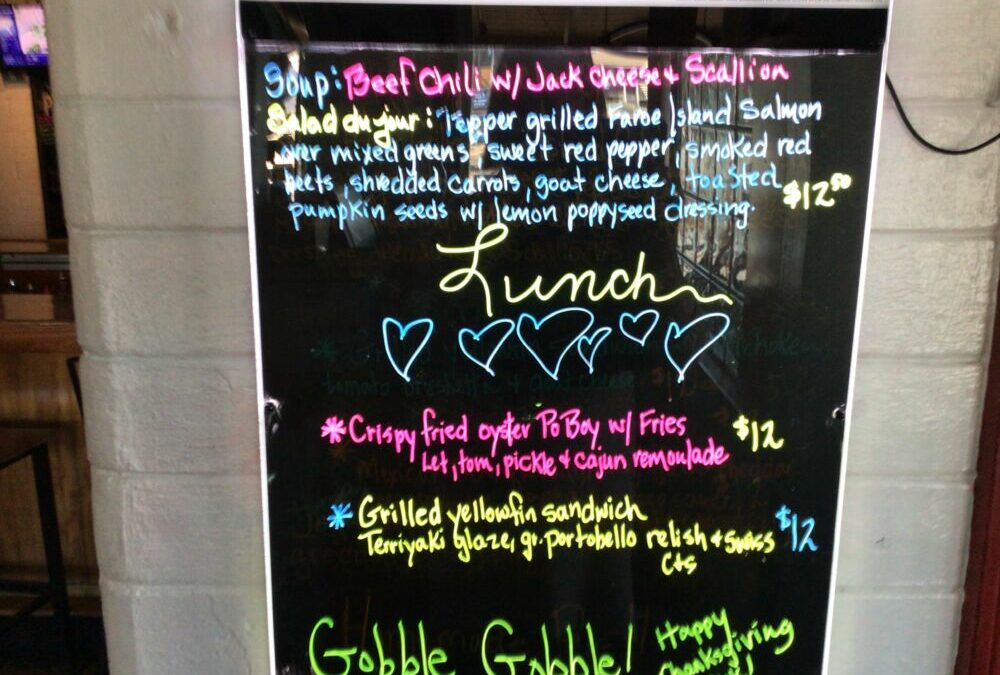 Soup: Beef Chili w/ Jack cheese & Scallion
Salad du jour: Pepper grilled Faroe Island Salmon
over mixed greens, sweet red pepper, smoked red
beets, shredded carrots, goat cheese, toasted
pumpkin seeds w/ lemon poppyseed dressing. $12.50
Lunch
* Crispy fried oyster Po Boy w/ Fries $12
Let, tom, pickle & cajun remoulade
* Grilled yellowfin sandwich $12
Terriyaki glaze, gr. portobello relish & swiss
Cts
Gobble Gobble! Happy
Thanksgiving